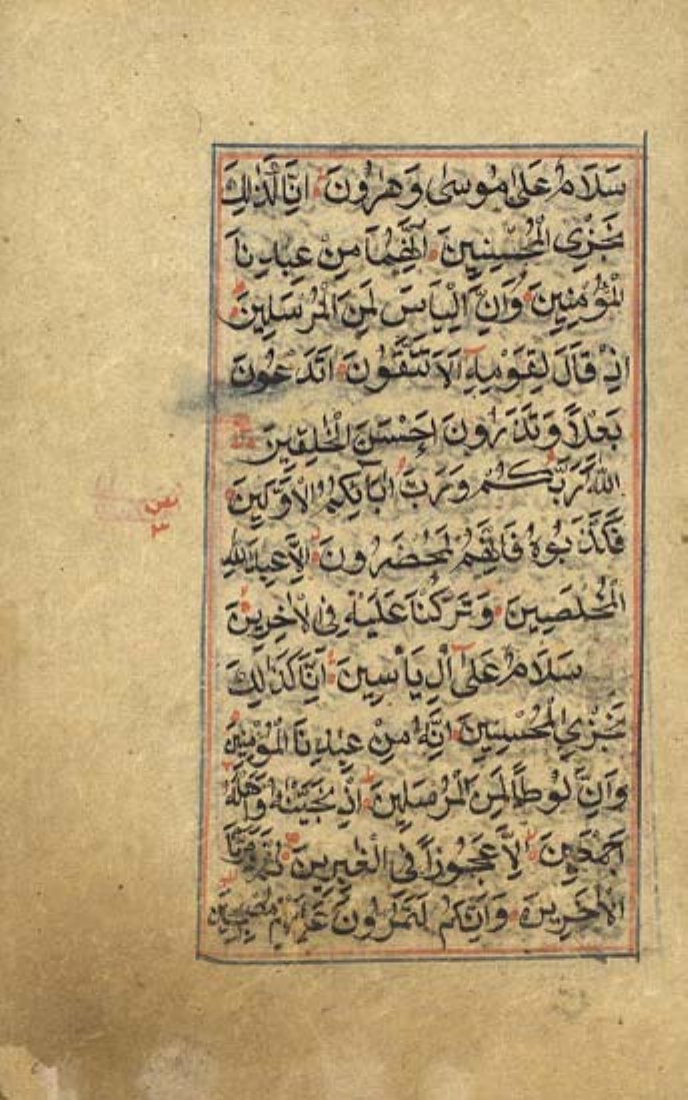 سَلَامٌ عَلَىٰ مُوسٰى وَهٰرُونَ اِنَّا كَذٰلِكَ
نَجْزِى الْمُحْسِنِينَ اِنَّهُمَا مِنْ عِبَادِنَا
الْمُؤْمِنِينَ وَاِنَّ اِلْيَاسَ لَمِنَ الْمُرْسَلِينَ
اِذْ قَالَ لِقَوْمِهٖٓ اَلَا تَتَّقُونَ اَتَدْعُونَ
بَعْلًا وَتَذَرُونَ اَحْسَنَ الْخٰلِقِينَ
اللّٰهَ رَبَّكُمْ وَرَبَّ اٰبَآئِكُمُ الْاَوَّلِينَ
فَكَذَّبُوهُ فَاِنَّهُمْ لَمُحْضَرُونَ اِلَّا عِبَادَ اللّٰهِ
الْمُخْلَصِينَ وَتَرَكْنَا عَلَيْهِ فِى الْاٰخِرِينَ
سَلَامٌ عَلٰٓى اٰلِ يَاْسِينَ اِنَّا كَذٰلِكَ
نَجْزِى الْمُحْسِنِينَ اِنَّهُ مِنْ عِبَادِنَا الْمُؤْمِنِينَ
وَاِنَّ لُوطًا لَمِنَ الْمُرْسَلِينَ اِذْ نَجَّيْنٰهُ وَاَهْلَهُ
اَجْمَعِينَ اِلَّا عَجُوزًا فِى الْغٰبِرِينَ ثُمَّ دَمَّرْنَا
الْاٰخَرِينَ وَاِنَّكُمْ لَتَمُرُّونَ عَلَيْهِمْ مُصْبِحِينَ